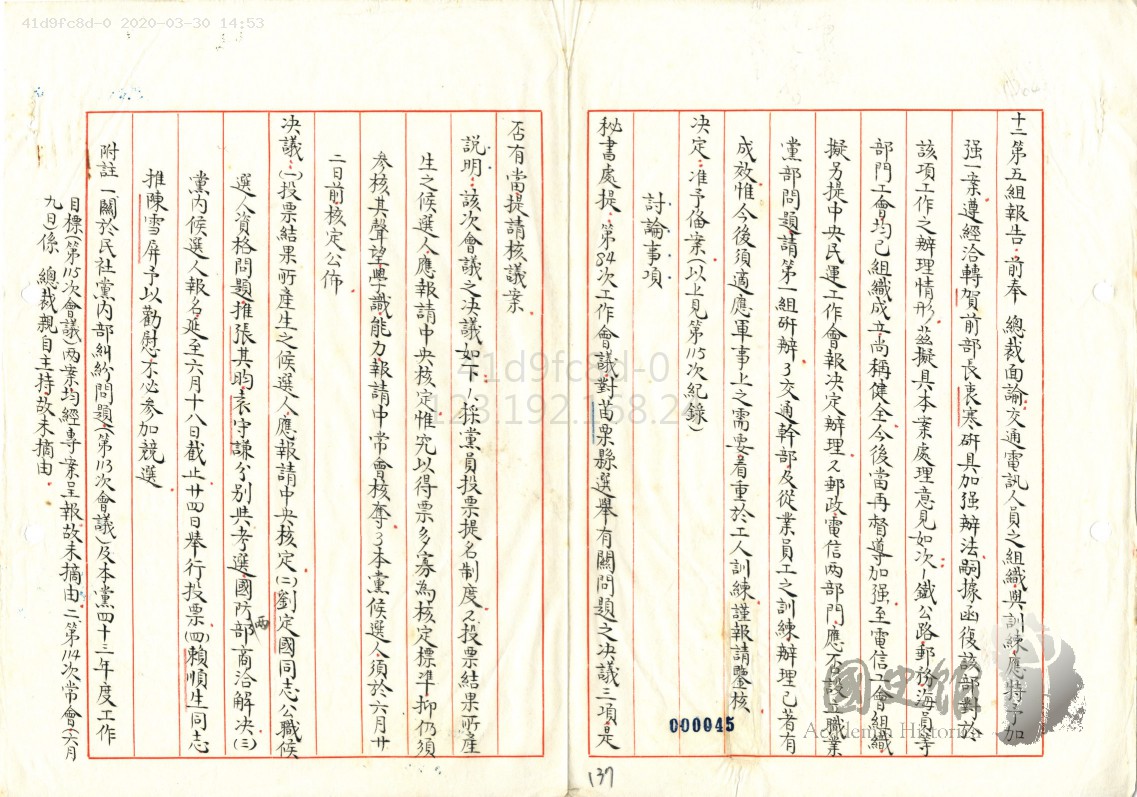 41d9fc8d-0 2020-03-30 14:53
十二第五組報告：前奉　總裁面諭交通電訊人員之組織與訓練應特予加
强一案遵經洽轉賀前部長衷寒研具加强辦法嗣據函復該部對於
該項工作之辦理情形茲擬具本案處理意見如次1鐵公路郵務海員等
部門工會均已組織成立尚稱健全今後當再督導加强至電信工會組織
擬另提中央民運工作會報決定辦理2郵政電信两部門應否設立職業
黨部問題請第一組研辦3交通幹部及從業員工之訓練辦理已著有
成效惟今後須適應軍事上之需要着重於工人訓練謹報請鑒核
决定：准予俻案（以上見第115次紀錄）
討論事項
秘書處提：第84次工作會議對苗栗縣選舉有關問題之决議三項是
否有當提請核議案
説明：該次會議之决議如下1.採黨員投票提名制度2投票結果所產
生之候選人應報請中央核定惟究以得票多寡為核定標準抑仍須
參核其聲望學識能力報請中常會核奪3本黨候選人須於六月廿
二日前核定公佈
决議：㈠投票結果所產生之候選人應報請中央核定㈡劉定國同志公職候
選人資格問題推張其昀袁守謙分别與考選國防两部商洽解决㈢
黨内候選人報名延至六月十八日截止廿四日舉行投票㈣賴順生同志
推陳雪屏予以勸慰不必參加競選
附註一關於民社黨内部糾紛問題（第113次會議）及本黨四十三年度工作
目標（第115次會議）两案均經專案呈報故未摘由二第114次常會（六月
九日）係　總裁親自主持故未摘由
000045
137
41d9fc8d-0
國史館
Academia Historica